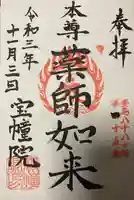 奉拝
本尊
薬師如来
令和三年
十月三日
宝幢院